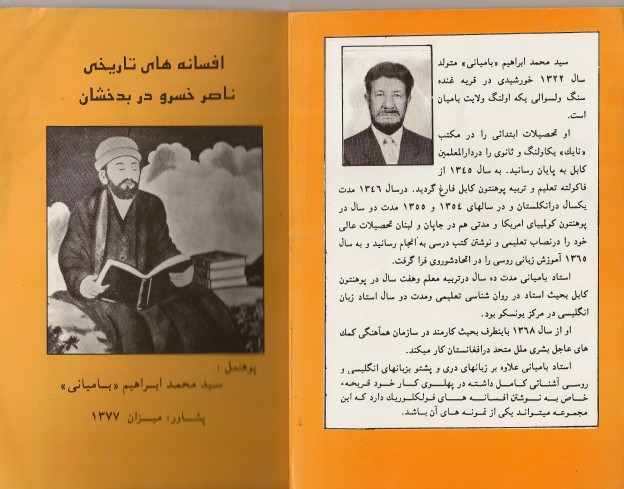 افسانه های تاریخی
ناصر خسرو در بدخشان
پوهنمل :
سید محمد ابراهیم «بامیانی»
پشاور: میزان ۱۳۷۷
سید محمد ابراهیم «بامیانی» متولد
سال ۱۳۲۲ خورشیدی در قریه غنده
سنگ ولسوالی یکه اولنگ ولایت بامیان
است.
او تحصیلات ابتدائی را در مکتب
«نایك» یکاولنگ و ثانوی را دردارالمعلمین
کابل به پایان رسانید. به سال ۱۳۴۵ از
فاکولته تعلیم و تربیه پوهنتون کابل فارغ گردید. درسال ۱۳۴۶ مدت
یکسال درانگلستان و در سالهای ۱۳۵۴ و ۱۳۵۵ مدت دو سال در
پوهنتون کولمبیای امریکا و مدتی هم در جاپان و لبنان تحصیلات عالی
خود را درنصاب تعلیمی و نوشتن کتب درسی به انجام رسانید و به سال
۱۳۶۵ آموزش زبانی روسی را در اتحادشوروی فرا گرفت.
استاد بامیانی مدت ده سال درتربیه معلم وهفت سال در پوهنتون
کابل بحیث استاد در روان شناسی تعلیمی ومدت دو سال استاد زبان
انگلیسی در مرکز یونسکو بود.
او از سال ۱۳۶۸ باینطرف بحیث کارمند در سازمان همآهنگی کمك
های عاجل بشری ملل متحد درافغانستان کار میکند.
استاد بامیانی علاوه بر زبانهای دری و پشتو بزبانهای انگلیسی و
روسی آشنائی کامل داشته در پهلوی کار خود قریحه
خاص به نوشتن افسانه های فولکلوریك دارد که این
مجموعه میتواند یکی از نمونه های آن باشد.